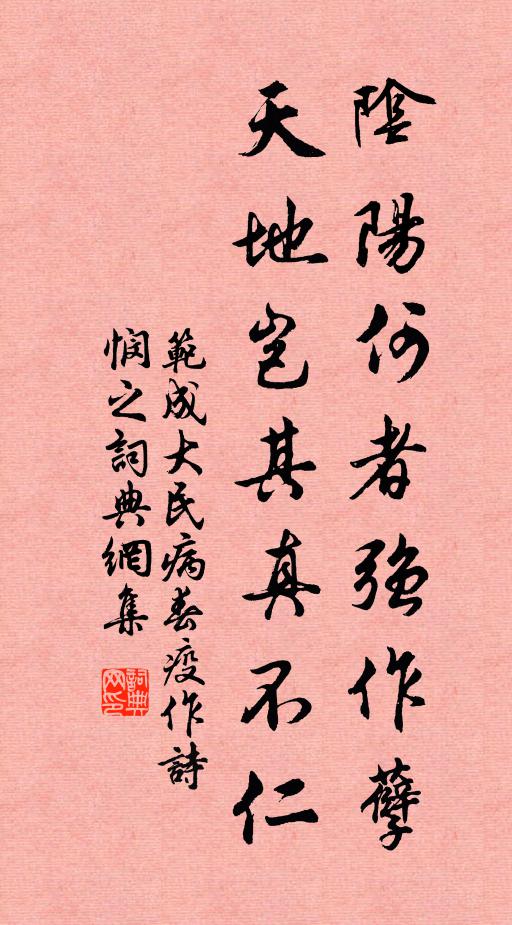 陰陽何者強作孽
天地豈其真不仁
範成大民病春疫作詩
憫之詞典網集
詞典
网印